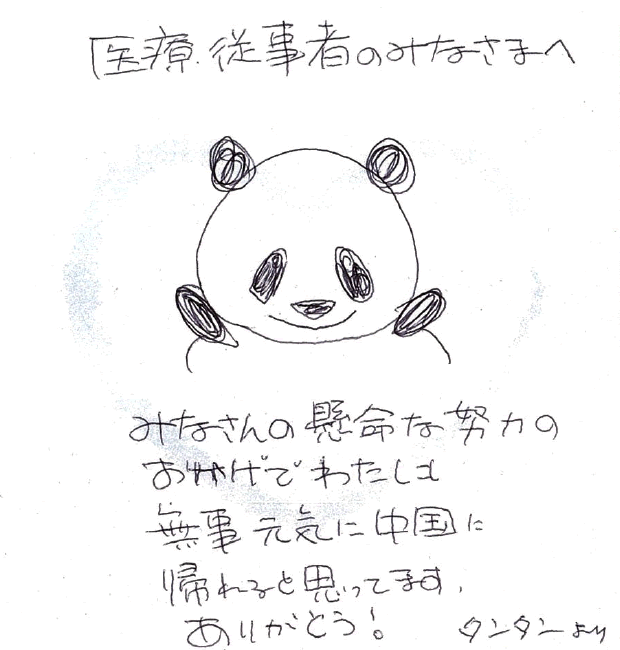 医療従事者のみなさまへ
みなさんの懸命な努力の
おかげでわたしは
無事元気に中国に
帰れると思ってます。
ありがとう!
タンタンより